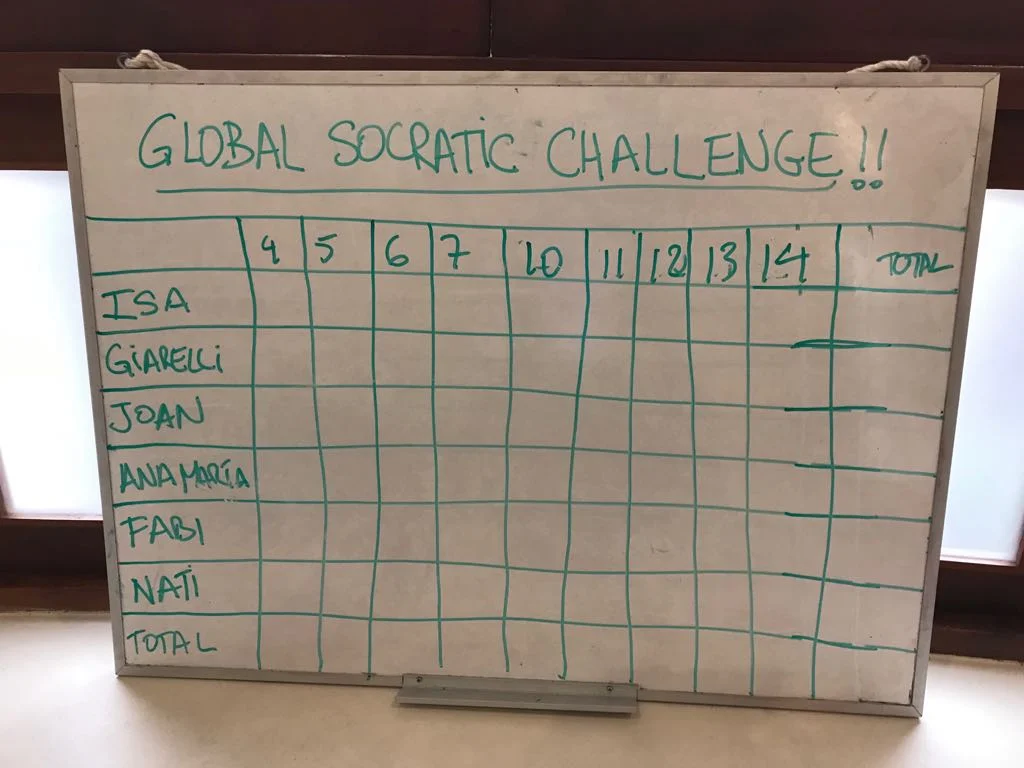 GLOBAL SOCRATIC CHALLENGE!!
4 5 6 7 10 11 12 13 14 TOTAL
ISA
GIARELLI
JOAN
ANA MARÍA
FABI
NATI
TOTAL